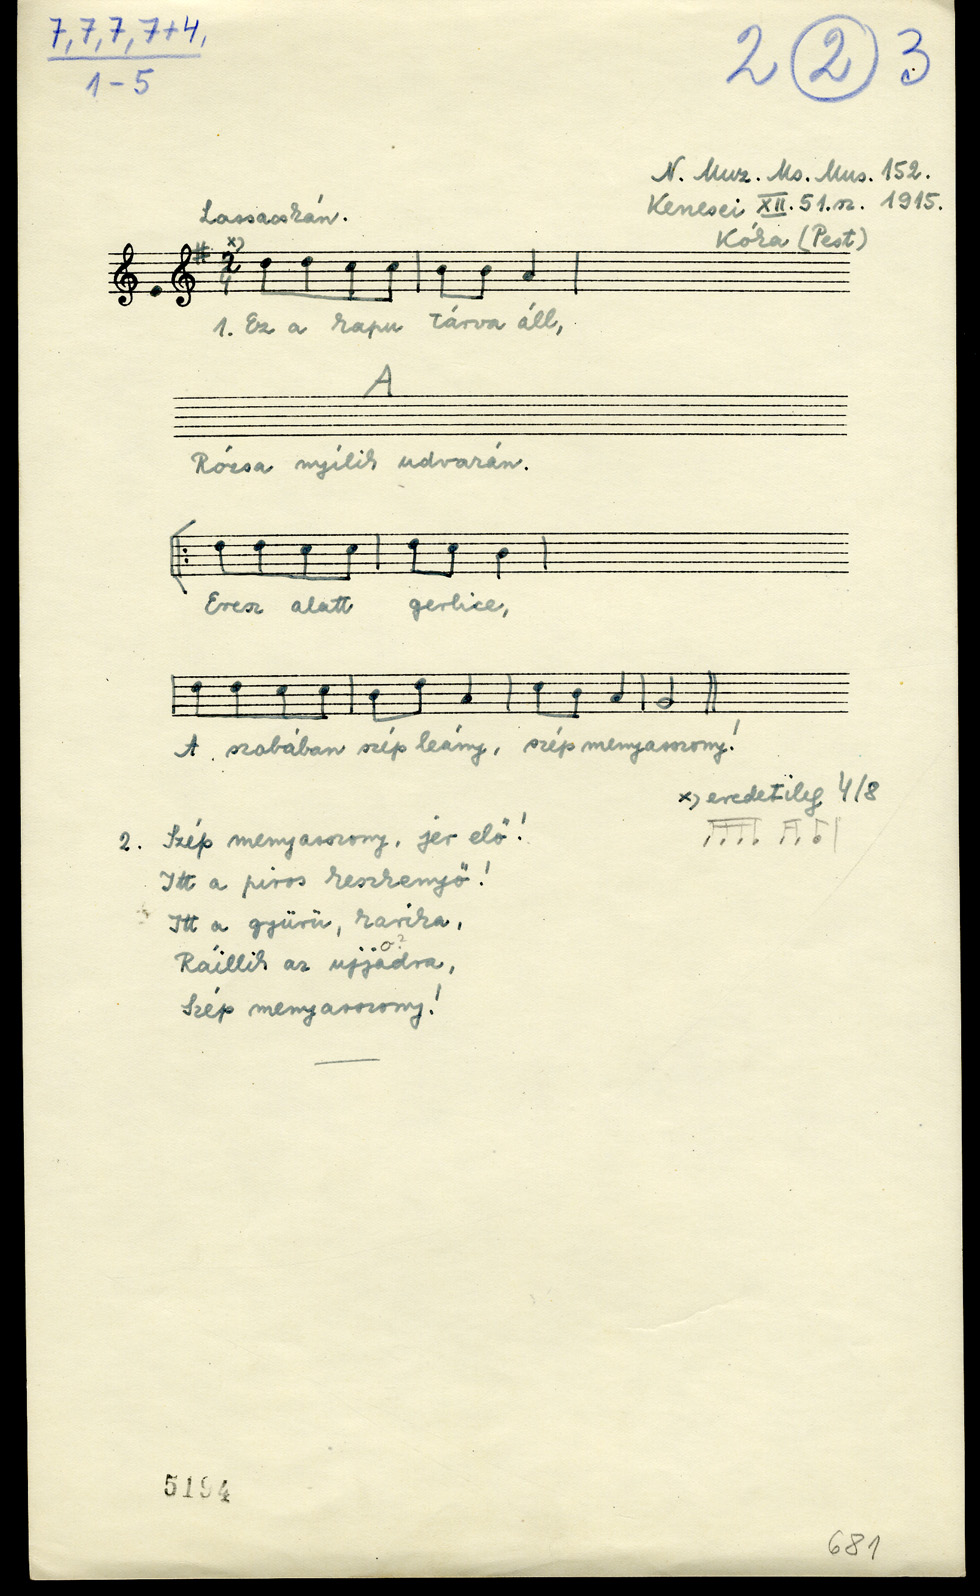 7, 7, 7, 7+4,
1-5
2 2 3
N. Muz. Ms. Mus. 152.
Kenesei XII. 51. sz. 1915.
Kóka (Pest)
Lassacskán.
x)
2
4
1. Ez a kapu tárva áll,
A
Rózsa nyílik udvarán.
Eresz alatt gerlice,
A szobában szép leány, szép menyasszony!
x) eredetileg 4/8
2. Szép menyasszony, jér elő!
Itt a piros keszkenyő!
Itt a gyűrű, karika,
o?
Ráillik az ujjadra,
Szép menyasszony!
5194
681